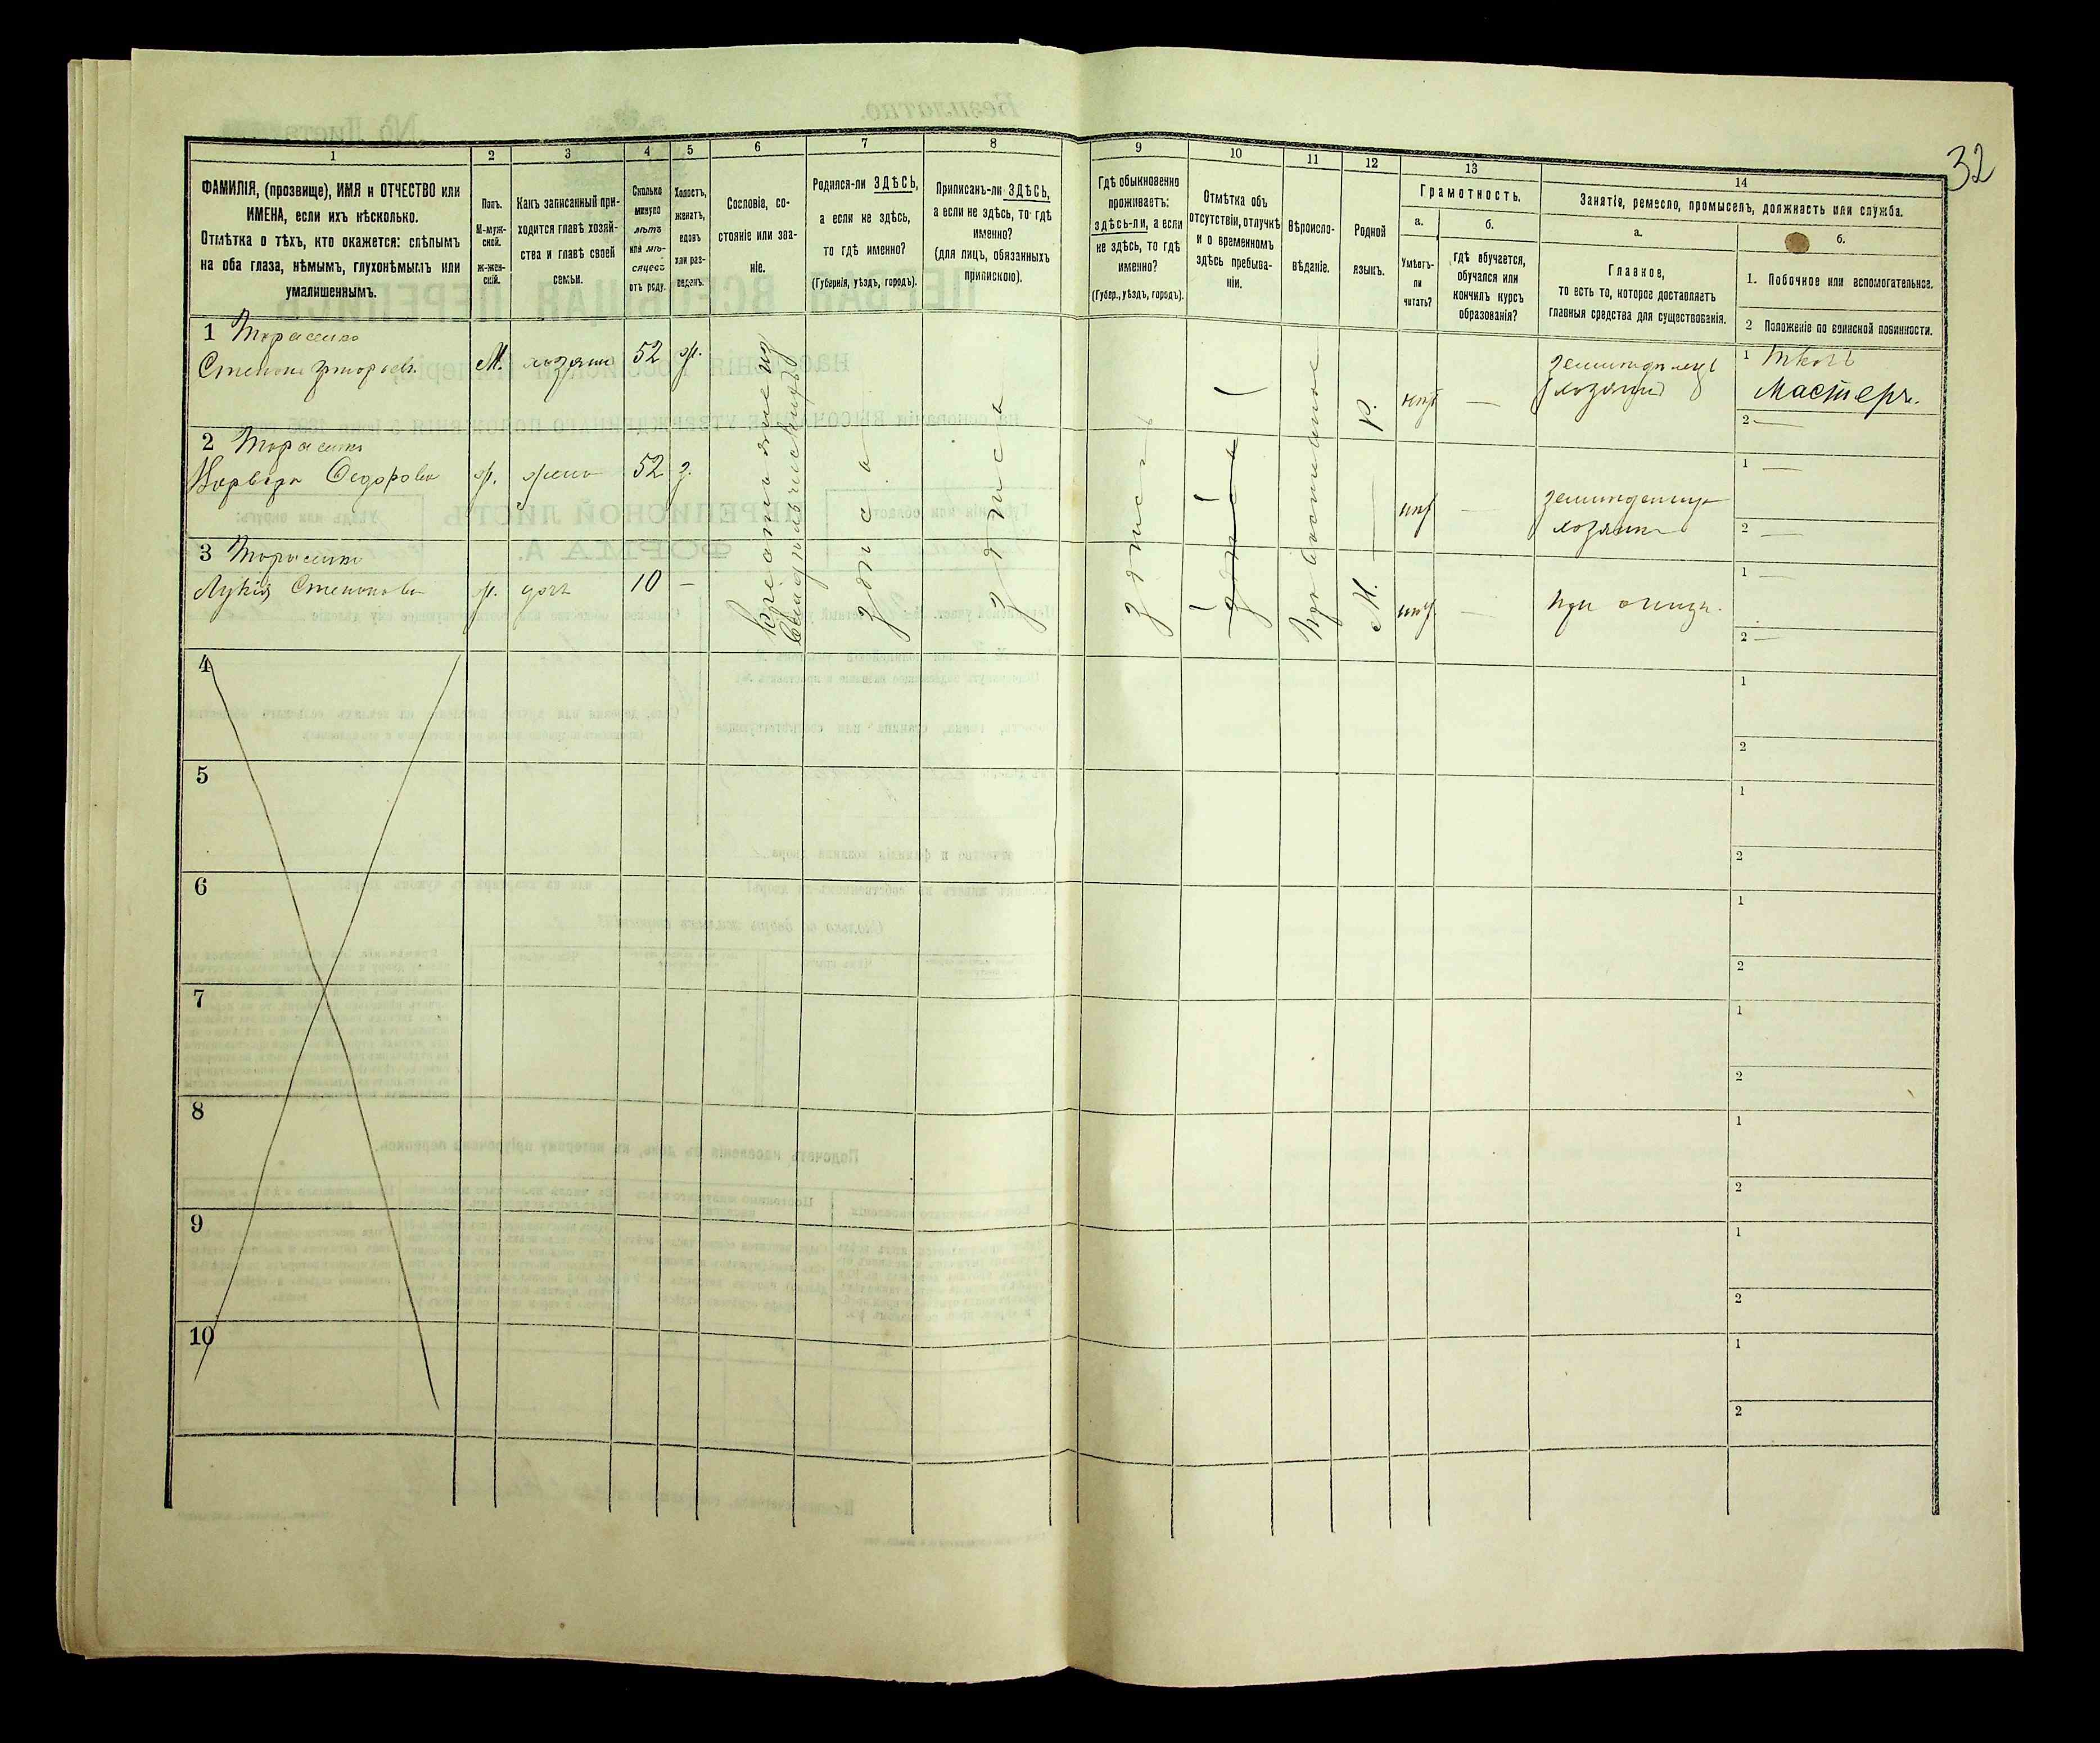 32
1
2
3
4
5
6
7
8
9
10
11
12
13
14
ФАМИЛІЯ, (прозвище), ИМЯ и ОТЧЕСТВО или
ИМЕНА, если ихъ нѣсколько.
Отмѣтка о тѣхъ, кто окажется: слѣпымъ
на оба глаза, нѣмымъ, глухонѣмымъ или
умалишеннымъ.
Полъ.
М-муж-
ской.
ж-жен-
скій.
Какъ записанный при-
ходится главѣ хозяй-
ства и главѣ своей
семьи.
Сколько
минуло
лѣтъ
или мѣ-
сяцевъ
отъ роду.
Холостъ,
женатъ,
вдовъ
или раз-
веденъ.
Сословіе, со-
стояніе или зва-
ніе.
Родился-ли ЗДѢСЬ,
а если не здѣсь,
то гдѣ именно?
(Губернія, уѣздъ, городъ).
Приписанъ-ли ЗДѢСЬ,
а если не здѣсь, то гдѣ
именно?
(для лицъ, обязанныхъ
припискою).
Гдѣ обыкновенно
проживаетъ:
здѣсь-ли, а если
не здѣсь, то гдѣ
именно?
(Губер., уѣздъ, городъ).
Отмѣтка объ
отсутствіи, отлучкѣ
и о временномъ
здѣсь пребыва-
ніи.
Вѣроиспо-
вѣданіе.
Родной
языкъ.
Грамотность.
а.
Умѣетъ-
ли
читать?
б.
гдѣ обучается,
обучался или
кончилъ курсъ
образованія?
Занятіе, ремесло, промыселъ, должность или служба.
а.
Главное,
то есть то, которое доставляетъ
главныя средства для существованія.
б.
1. Побочное или вспомогательное.
2 Положеніе по воинской повинности.
1 Торасенко
Степонъ
М.
хозяинъ
52
ж.
Р.
нѣтъ
—
земледѣлецъ
хозяинъ
1 Ткачъ
Мастеръ.
2 —
2 Торасенко
Ворвора Сидорова
ж.
жена
52
з.
нѣтъ
—
хозяйка
1 —
2 —
3 Торасенко
Лукія Степонова
ж.
дочь
10
—
М.
нѣтъ
—
при отцѣ.
1 —
2 —
здѣсь
здѣсь
здѣсь
здѣсь
Православное
4
1
2
5
1
2
6
1
2
7
1
2
8
1
2
9
1
2
10
1
2